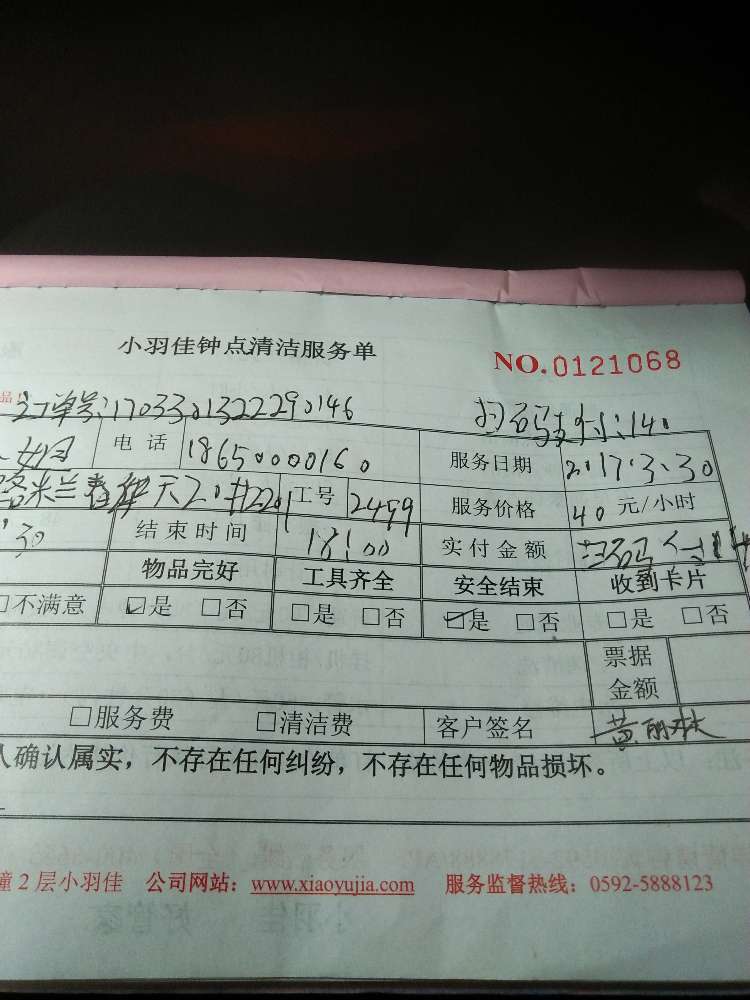 小羽佳钟点清洁服务单 NO.0121068
品!
订单号:1703301322290146 扫码支付:140
电话 18650000160 服务日期 2017.3.30
路米兰春天 工号 2499 服务价格 40元/小时
30 结束时间 18:00 实付金额
物品完好 工具齐全 安全结束 收到卡片
□不满意 ☑是 □否 □是 □否 ☑是 □否 □是 □否
票据
金额
□服务费 □清洁费 客户签名 黄丽
人确认属实，不存在任何纠纷，不存在任何物品损坏。
幢2层小羽佳 公司网站：www.xiaoyujia.com 服务监督热线：0592-5888123